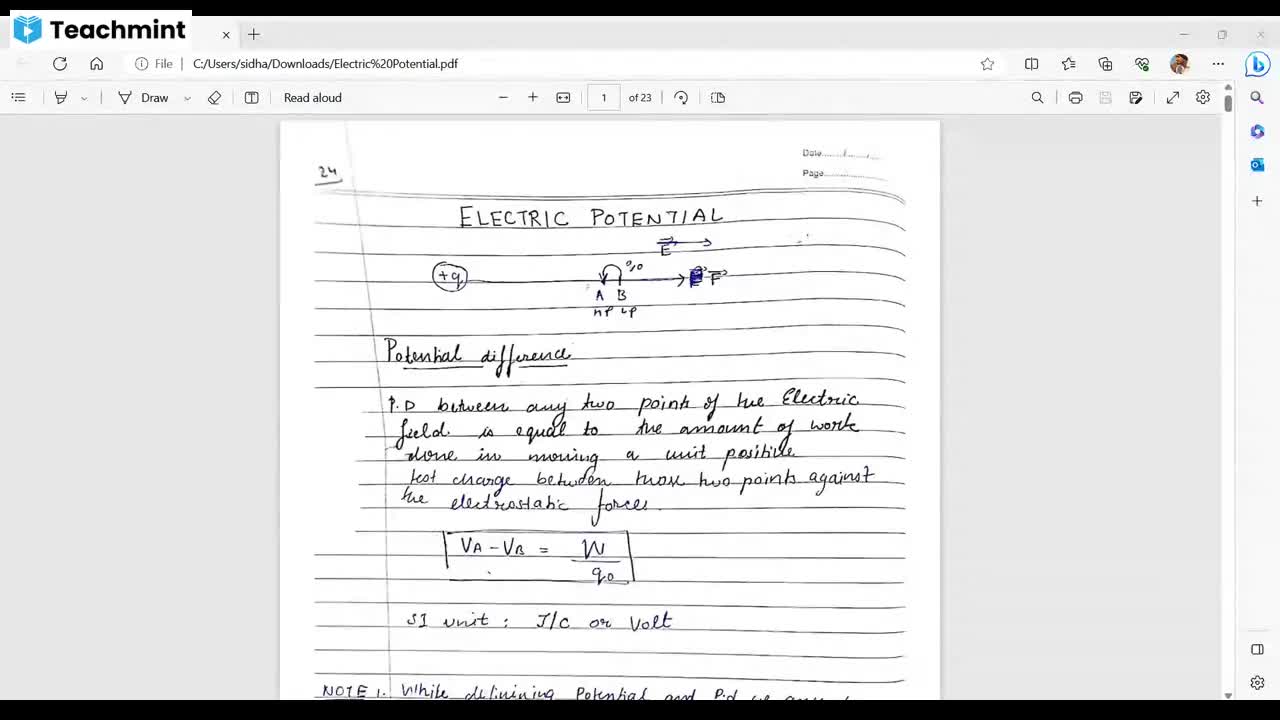 Teachmint
File C:/Users/sidha/Downloads/Electric%20Potential.pdf
Draw Read aloud 1 of 23
Date
Page
24
ELECTRIC POTENTIAL
E
+q q0 F
A B
HP LP
Potential difference
P.D between any two points of the Electric
field is equal to the amount of work
done in moving a unit positive
test charge between those two points against
the electrostatic forces.
VA - VB = W
q0
SI unit : J/C or Volt
NOTE 1. While defining Potential and P.d we